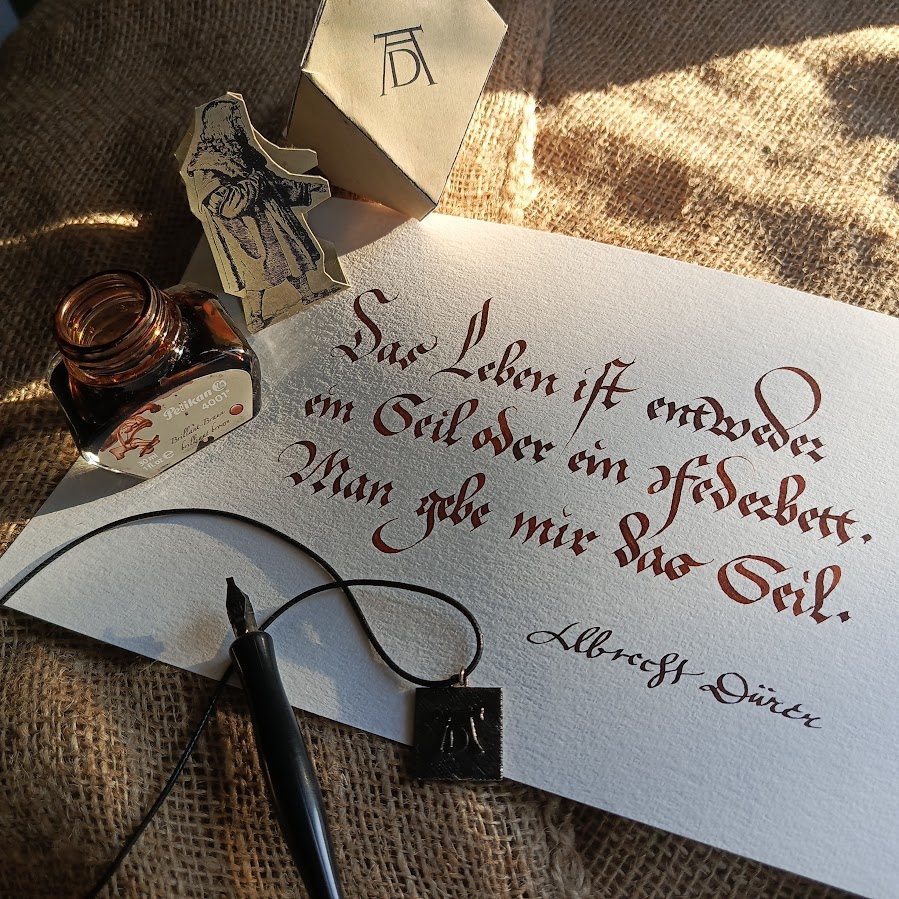 AD
Das Leben ist entweder
ein Seil oder ein Federbett.
Man gebe mir das Seil.
Albrecht Dürer
Pelikan
4001®
Brillant-Braun
brilliant brown
AD